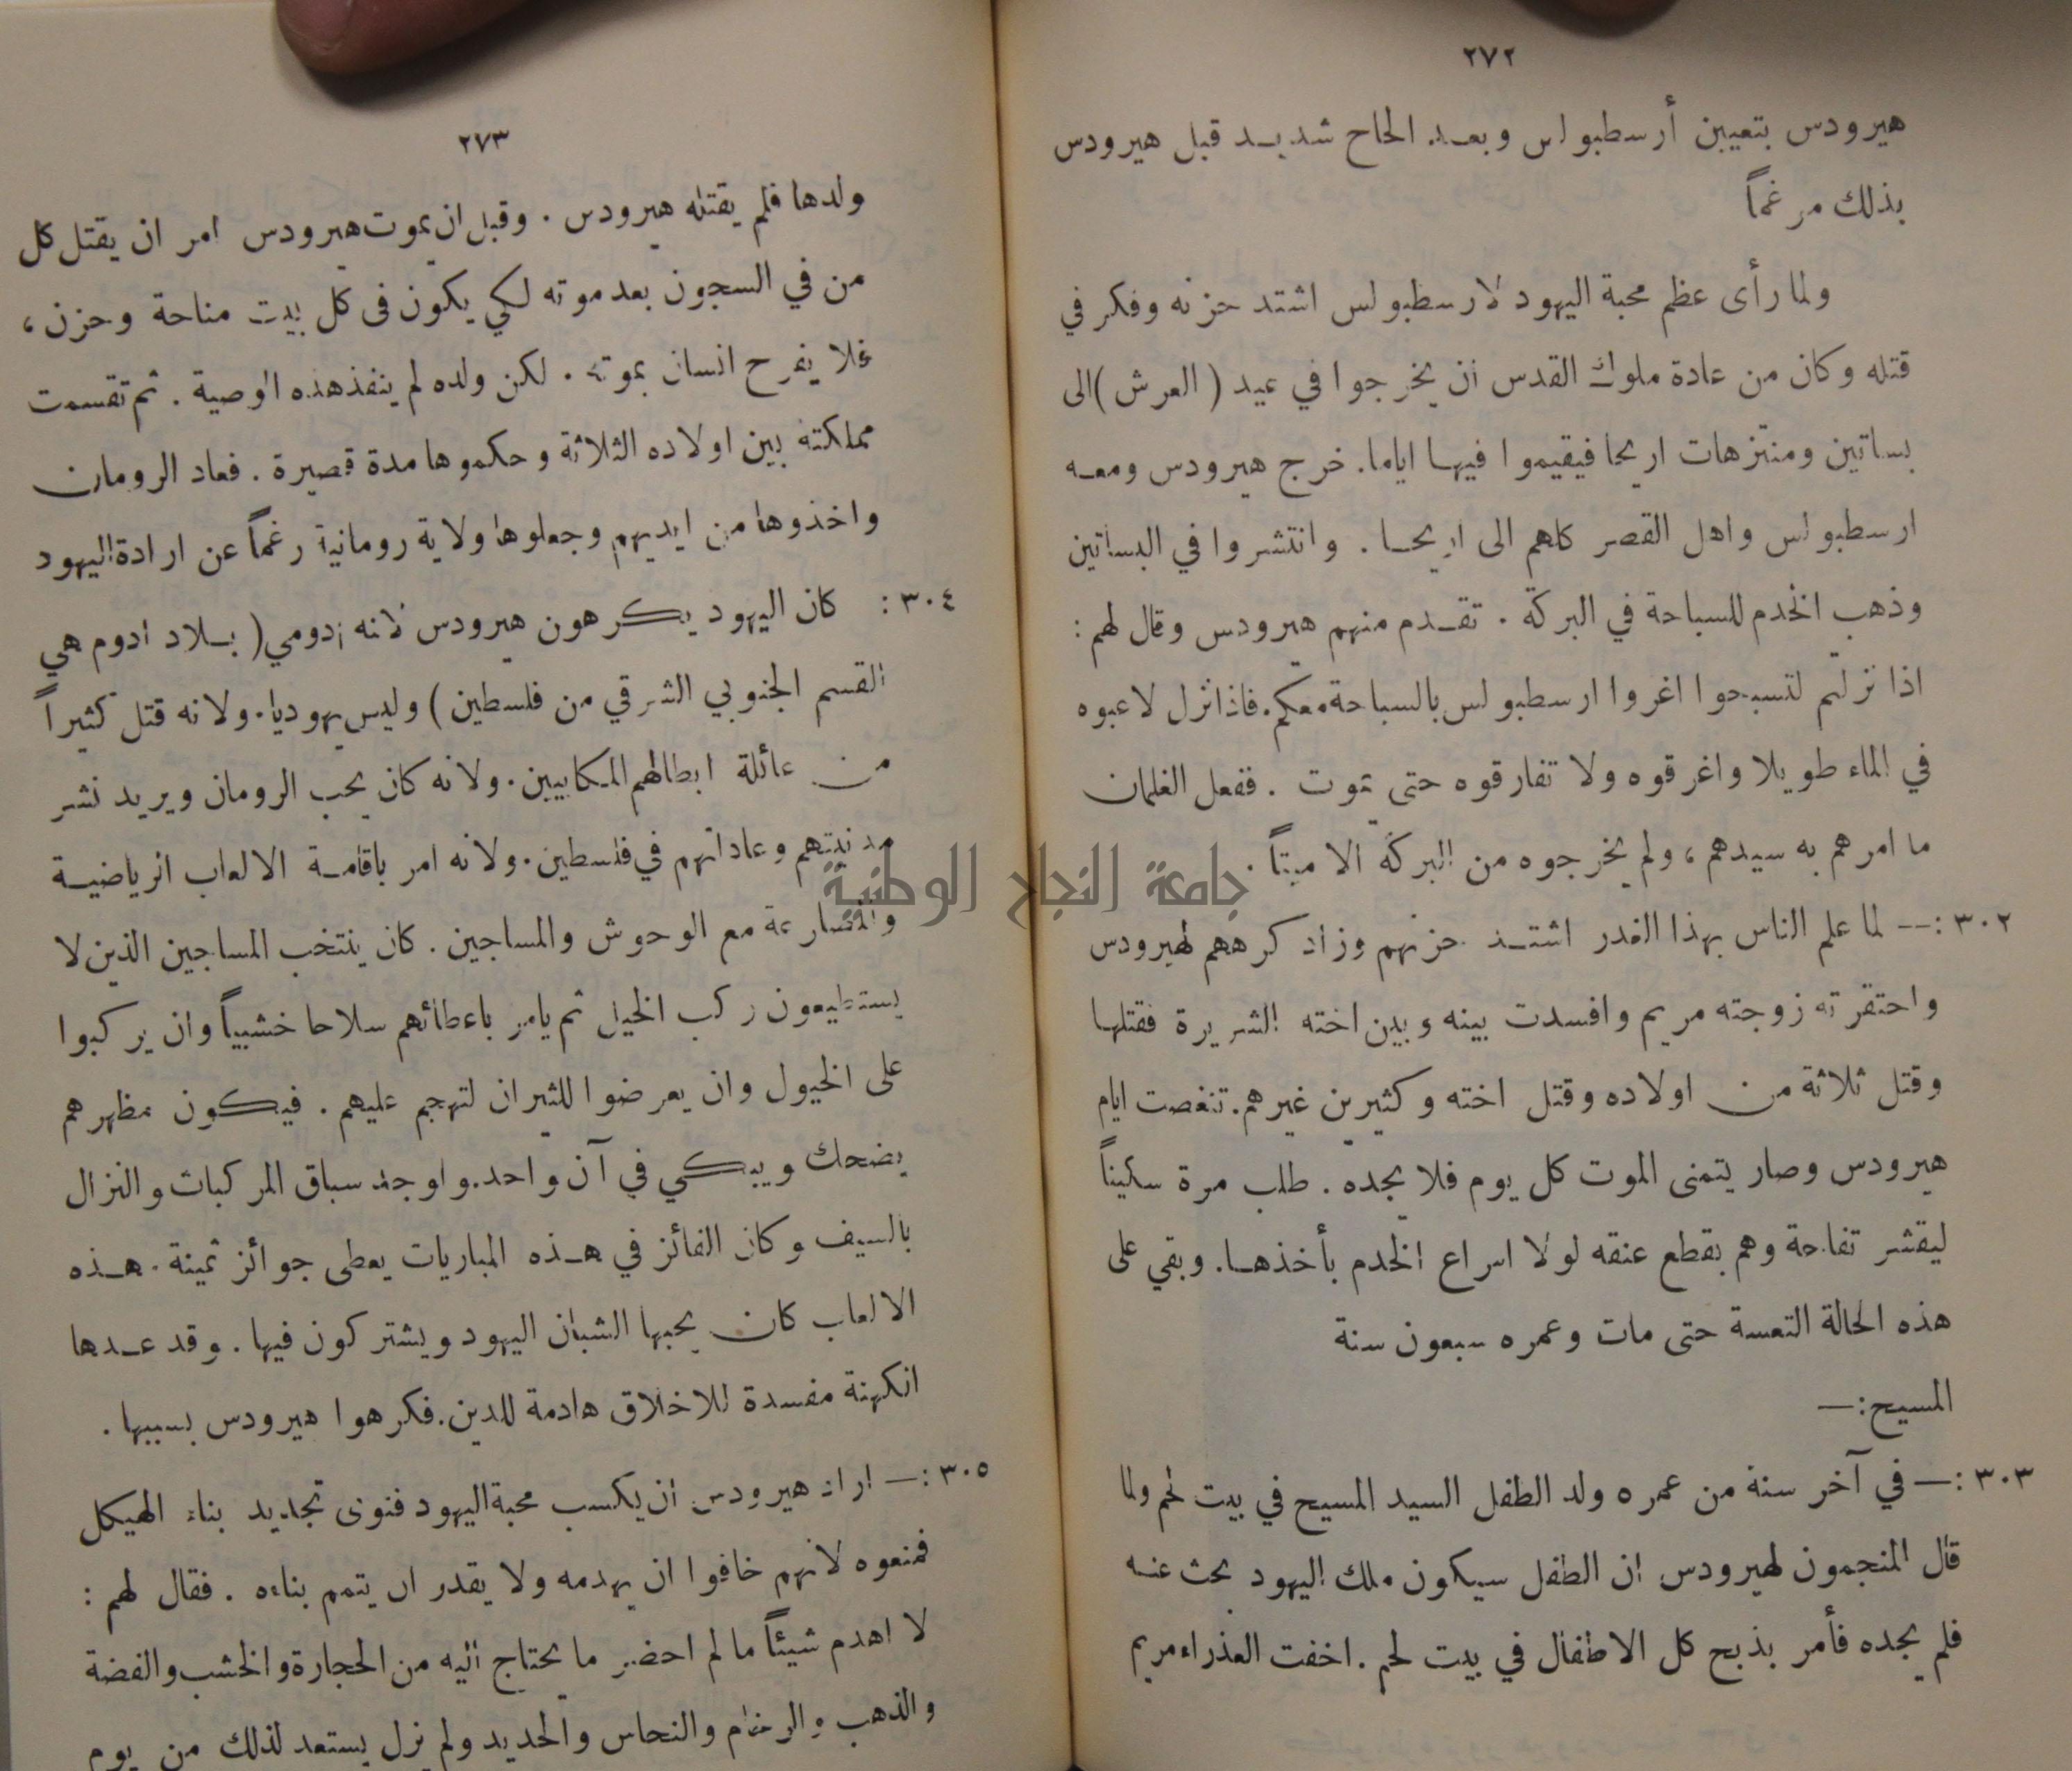 ٢٧٢
هيرودس بتعيين أرسطبولس وبعد الحاح شديد قبل هيرودس
بذلك مرغماً
ولما رأى عظم محبة اليهود لارسطبولس اشتد حزنه وفكر في
قتله وكان من عادة ملوك القدس أن يخرجوا في عيد ( العرش )الى
بساتين ومنتزهات اريحا فيقيموا فيها اياما. خرج هيرودس ومعه
ارسطبولس واهل القصر كلهم الى اريحا . وانتشروا في البساتين
وذهب الخدم للسباحة في البركة . تقدم منهم هيرودس وقال لهم :
اذا نزلتم لتسبحوا اغروا ارسطبولس بالسباحة معكم.فاذا نزل لاعبوه
في الماء طويلا واغرقوه ولا تفارقوه حتى يموت . ففعل الغلمان
ما امرهم به سيدهم ، ولم يخرجوه من البركة الا ميتاً .
٣٠٢ :— لما علم الناس بهذا الغدر اشتد حزنهم وزاد كرههم لهيرودس
واحتقرته زوجته مريم وافسدت بينه وبين اخته الشريرة فقتلها
وقتل ثلاثة من اولاده وقتل اخته وكثيرين غيرهم.تنغصت ايام
هيرودس وصار يتمنى الموت كل يوم فلا يجده . طلب مرة سكيناً
ليقشر تفاحة وهم بقطع عنقه لولا اسراع الخدم بأخذها. وبقي على
هذه الحالة التعسة حتى مات وعمره سبعون سنة
المسيح:—
٣٠٣ :— في آخر سنة من عمره ولد الطفل السيد المسيح في بيت لحم ولما
قال المنجمون لهيرودس ان الطفل سيكون ملك اليهود بحث عنه
فلم يجده فأمر بذبح كل الاطفال في بيت لحم .اخفت العذراء مريم
٢٧٣
ولدها فلم يقتله هيرودس . وقبل ان يموت هيرودس امر ان يقتل كل
من في السجون بعد موته لكي يكون في كل بيت مناحة وحزن ،
فلا يفرح انسان بموته . لكن ولده لم ينفذ هذه الوصية . ثم تقسمت
مملكته بين اولاده الثلاثة وحكموها مدة قصيرة . فعاد الرومان
واخذوها من ايديهم وجعلوها ولاية رومانية رغماً عن ارادة اليهود
٣٠٤ : كان اليهود يكرهون هيرودس لانه ادومي( بلاد ادوم هي
القسم الجنوبي الشرقي من فلسطين ) وليس يهوديا.ولانه قتل كثيراً
من عائلة ابطالهم المكابيين.ولانه كان يحب الرومان ويريد نشر
مدنيتهم وعاداتهم في فلسطين.ولانه امر باقامة الالعاب الرياضية
والمصارعة مع الوحوش والمساجين . كان ينتخب المساجين الذين لا
يستطيعون ركب الخيل ثم يامر باعطائهم سلاحا خشبياً وان يركبوا
على الخيول وان يعرضوا للثيران لتهجم عليهم . فيكون مظهرهم
يضحك ويبكي في آن واحد.واوجد سباق المركبات والنزال
بالسيف وكان الفائز في هذه المباريات يعطى جوائز ثمينة . هذه
الالعاب كان يحبها الشبان اليهود ويشتركون فيها . وقد عدها
الكهنة مفسدة للاخلاق هادمة للدين.فكرهوا هيرودس بسببها .
٣٠٥ :— اراد هيرودس ان يكسب محبة اليهود فنوى تجديد بناء الهيكل
فمنعوه لانهم خافوا ان يهدمه ولا يقدر ان يتمم بناءه . فقال لهم :
لا اهدم شيئاً ما لم احضر ما يحتاج اليه من الحجارة والخشب والفضة
والذهب والرخام والنحاس والحديد ولم نزل يستعد لذلك من يوم
جامعة النجاح الوطنية